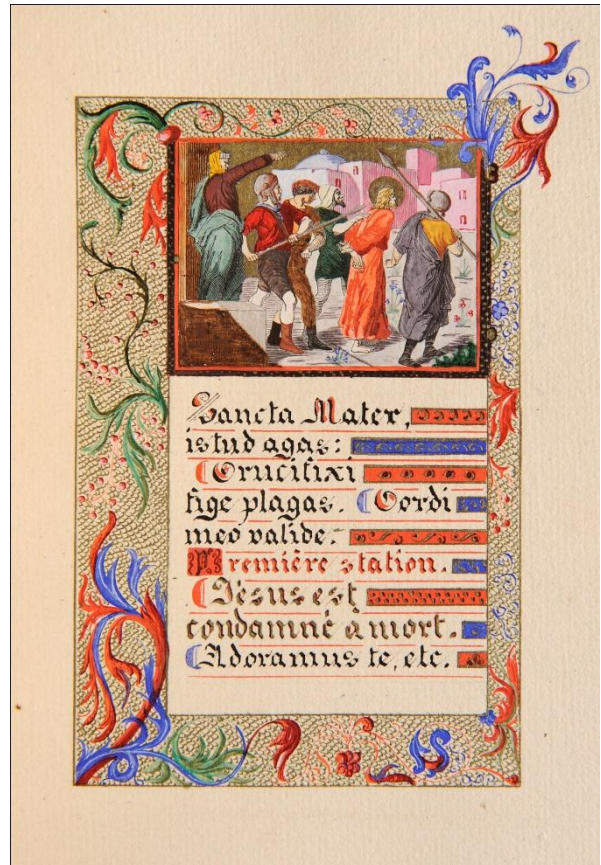 Sancta Mater,
istud agas:
Crucifixi
fige plagas. Cordi
meo valide.
Première station.
Jésus est
condamné a mort.
Adoramus te, etc.